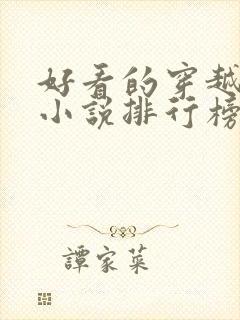 好看的穿越
小说排行榜
譚家菜